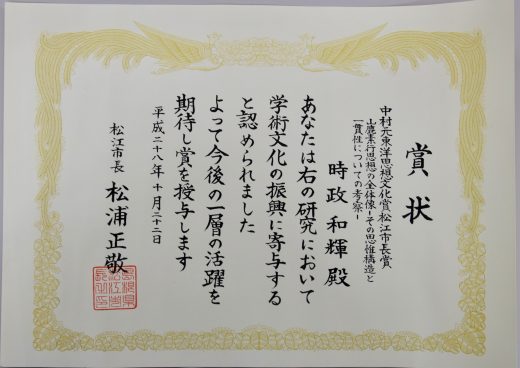 賞状
中村元東洋思想文化賞松江市長賞
山鹿素行思想の全体像-その思惟構造と
一貫性についての考察-
時政 和輝 殿
あなたは右の研究において
学術文化の振興に寄与する
と認められました
よって今後の一層の活躍を
期待し賞を授与します
平成二十八年十月二十二日
松江市長 松浦正敬